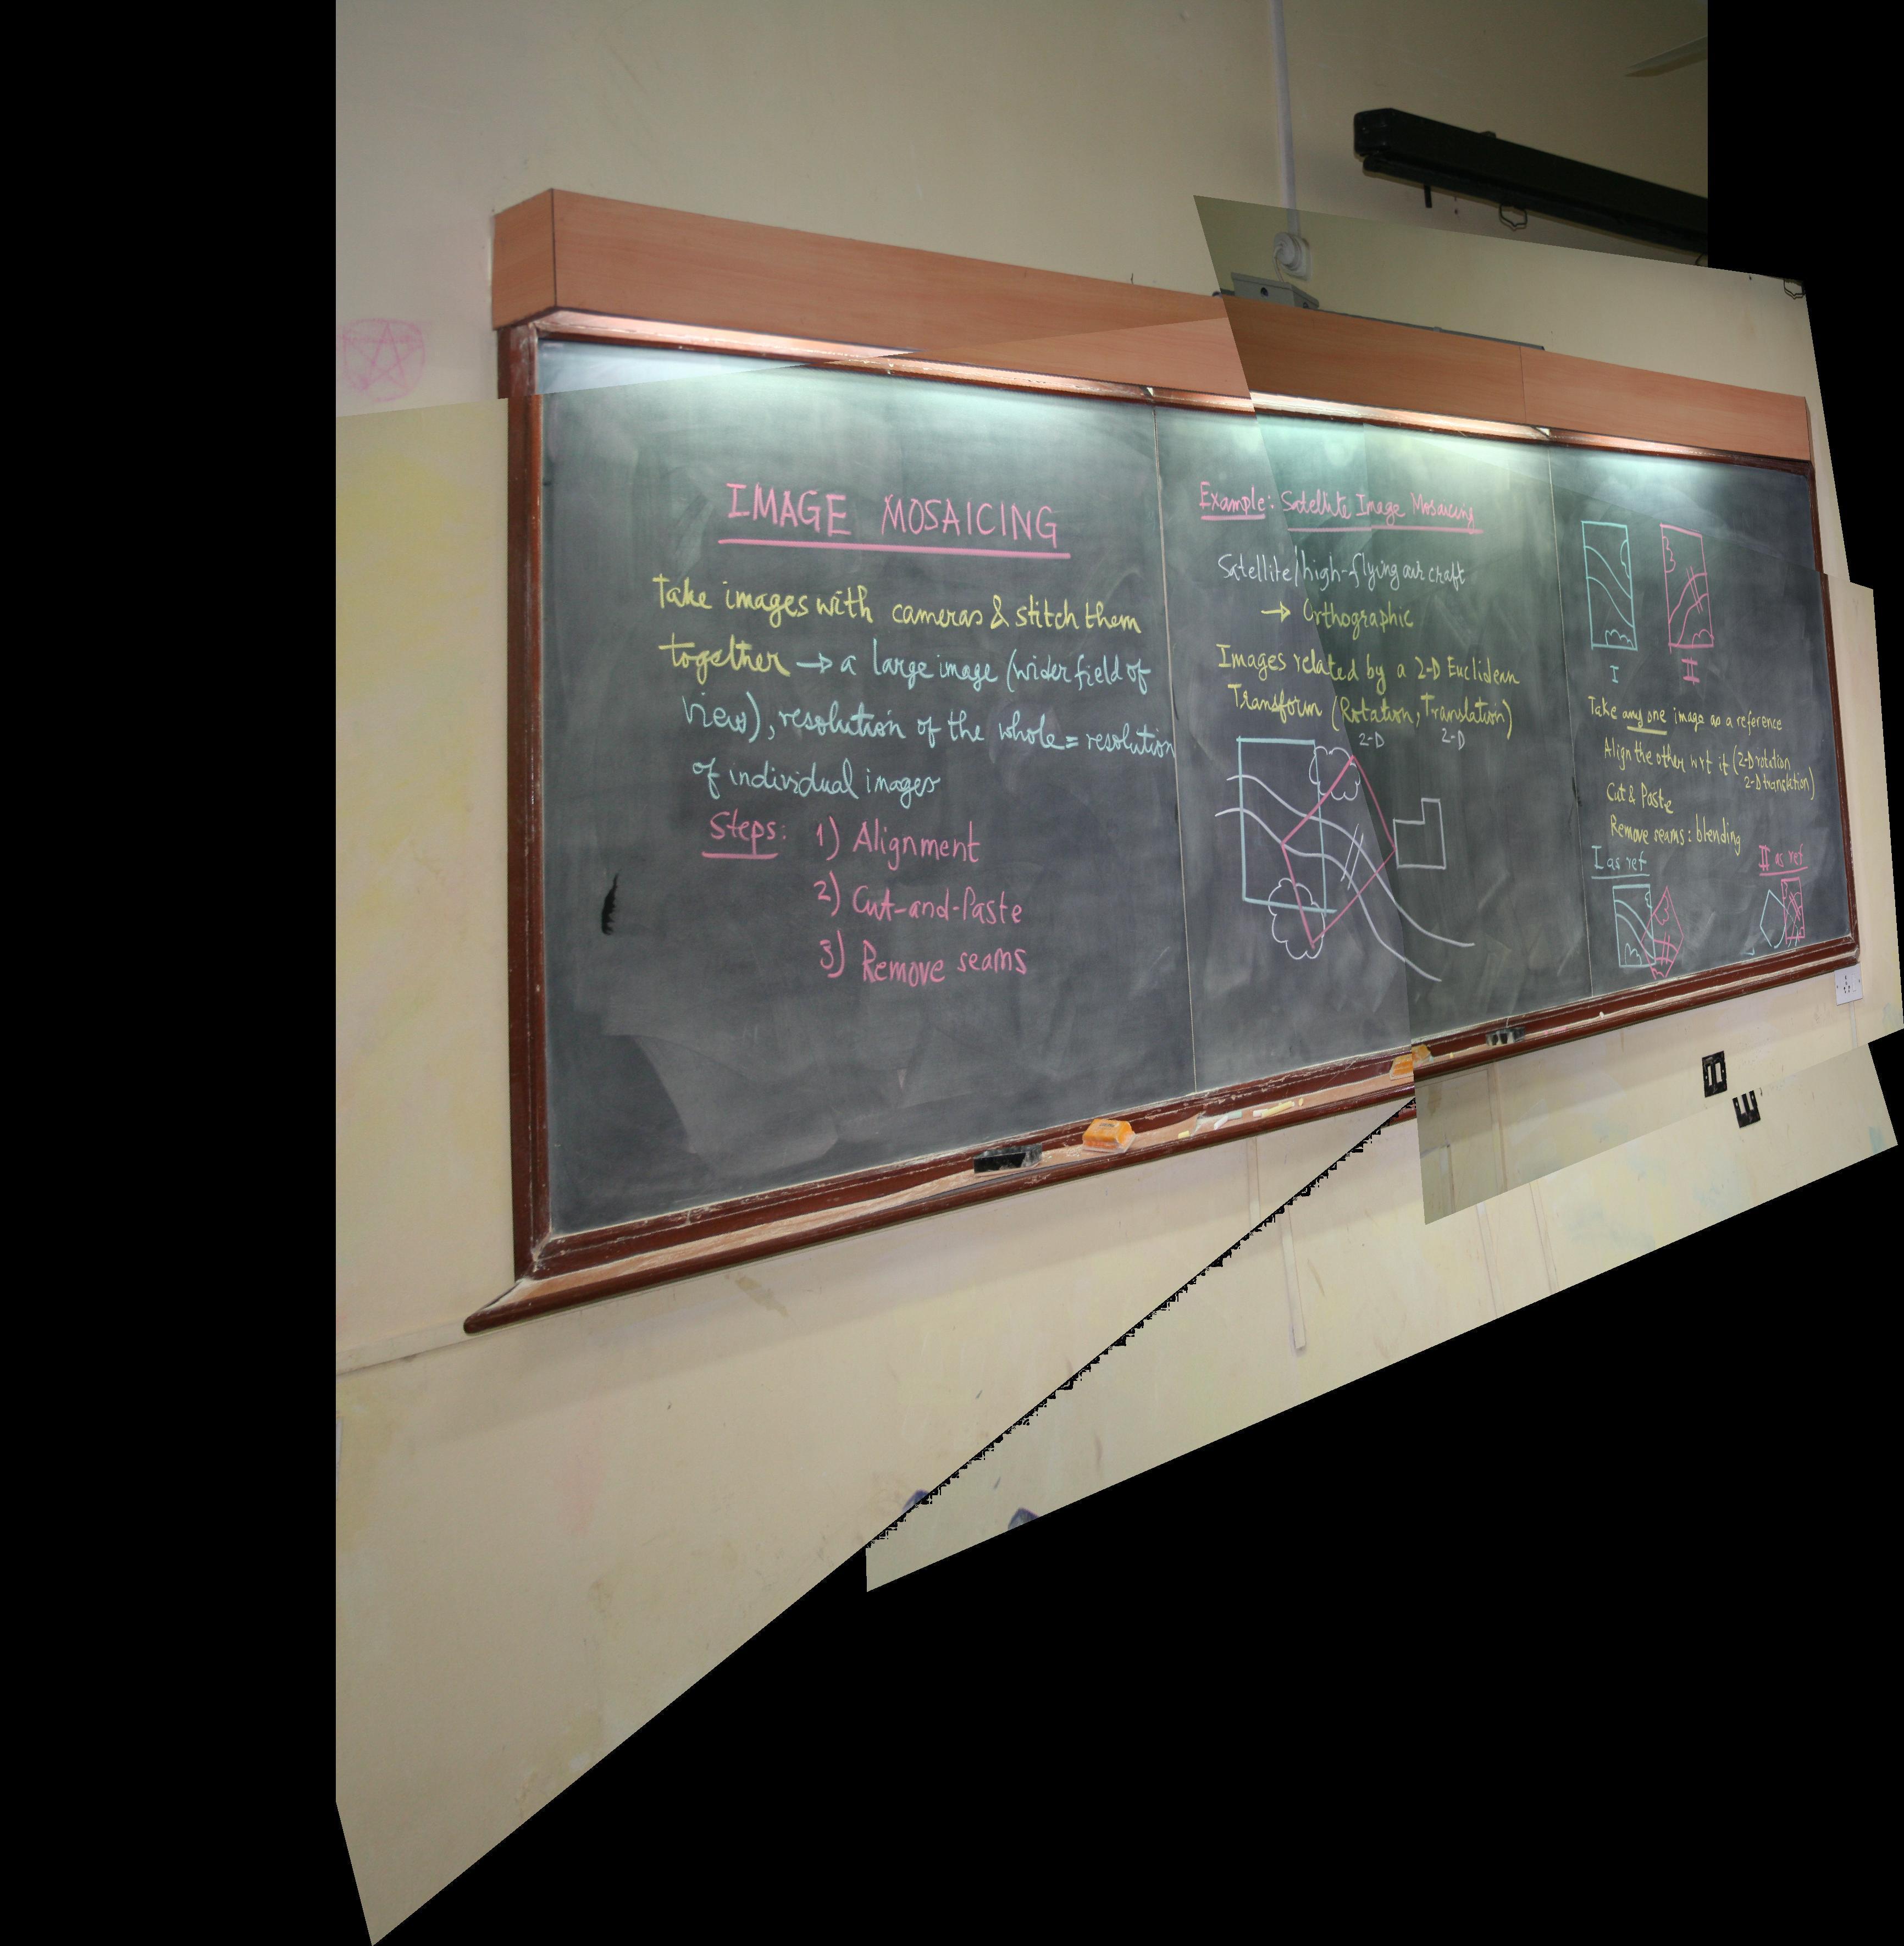 IMAGE MOSAICING
Take images with cameras & stitch them
together → a large image (wider field of
view), resolution of the whole = resolution
of individual images
Steps: 1) Alignment
2) Cut-and-Paste
3) Remove seams
Example: Satellite Image Mosaicing
Satellite/high-flying air craft
→ Orthographic
Images related by a 2-D Euclidean
Transform (Rotation, Translation)
2-D 2-D
I II
Take any one image as a reference
Align the other wrt it (2-D rotation
2-D translation)
Cut & Paste
Remove seams: blending
I as ref II as ref